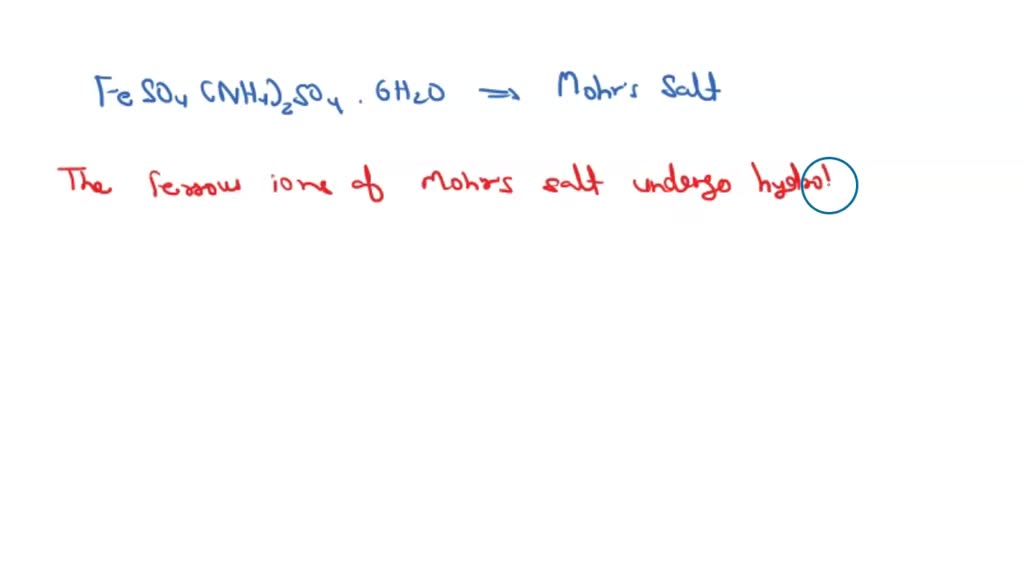 FeSO4 (NH4)2SO4 . 6H2O ⇒ Mohr's Salt
The ferrous ions of Mohr's salt undergo hydrol